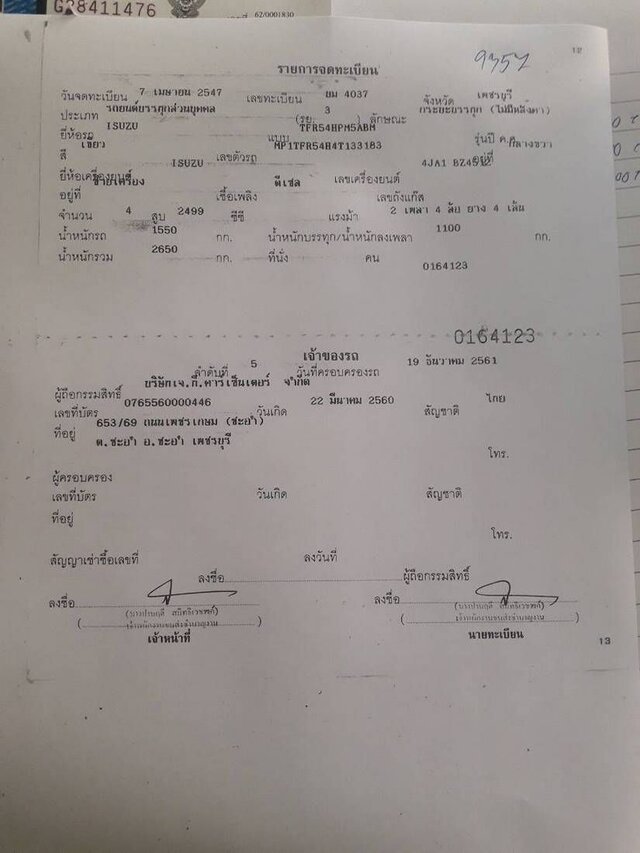 G28411476
62/0001830
9357
12
รายการจดทะเบียน
วันจดทะเบียน 7 เมษายน 2547 เลขทะเบียน ยม 4037 จังหวัด เพชรบุรี
ประเภท รถยนต์บรรทุกส่วนบุคคล (รย. 3 ) ลักษณะ กระบะบรรทุก (ไม่มีหลังคา)
ยี่ห้อรถ ISUZU แบบ TFR54HPM5ABM รุ่นปี ค.ศ.
สี เขียว เลขตัวรถ MP1TFR54R4T133183 อยู่ที่ กลางขวา
ยี่ห้อเครื่องยนต์ ISUZU เลขเครื่องยนต์ 4JA1
อยู่ที่ ซ้ายเครื่อง เชื้อเพลิง ดีเซล เลขถังแก๊ส
จำนวน 4 สูบ 2499 ซีซี แรงม้า 2 เพลา 4 ล้อ ยาง 4 เส้น
น้ำหนักรถ 1550 กก. น้ำหนักบรรทุก/น้ำหนักลงเพลา 1100 กก.
น้ำหนักรวม 2650 กก. ที่นั่ง คน 0164123
0164123
เจ้าของรถ
ลำดับที่ 5 วันที่ครอบครองรถ 19 ธันวาคม 2561
ผู้ถือกรรมสิทธิ์ บริษัทเจ.ที.คาร์เซ็นเตอร์ จำกัด
เลขที่บัตร 0765560000446 วันเกิด 22 มีนาคม 2560 สัญชาติ ไทย
ที่อยู่ 653/69 ถนนเพชรเกษม (ชะอำ)
ต.ชะอำ อ.ชะอำ เพชรบุรี
โทร.
ผู้ครอบครอง
เลขที่บัตร วันเกิด สัญชาติ
ที่อยู่
โทร.
สัญญาเช่าซื้อเลขที่ ลงวันที่
ลงชื่อ ผู้ถือกรรมสิทธิ์
ลงชื่อ ลงชื่อ
เจ้าพนักงานขนส่งชำนาญงาน เจ้าพนักงานขนส่งชำนาญงาน
เจ้าหน้าที่ นายทะเบียน
13